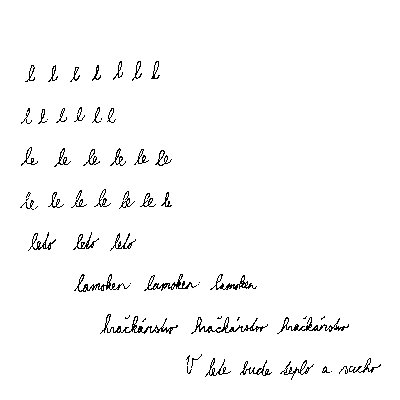 l l l l l l l
l l l l l l
le le le le le le
le le le le le le le
leto leto leto
lamoken lamoken lamoken
hračkárstvo hračkárstvo hračkárstvo
V lete bude teplo a sucho